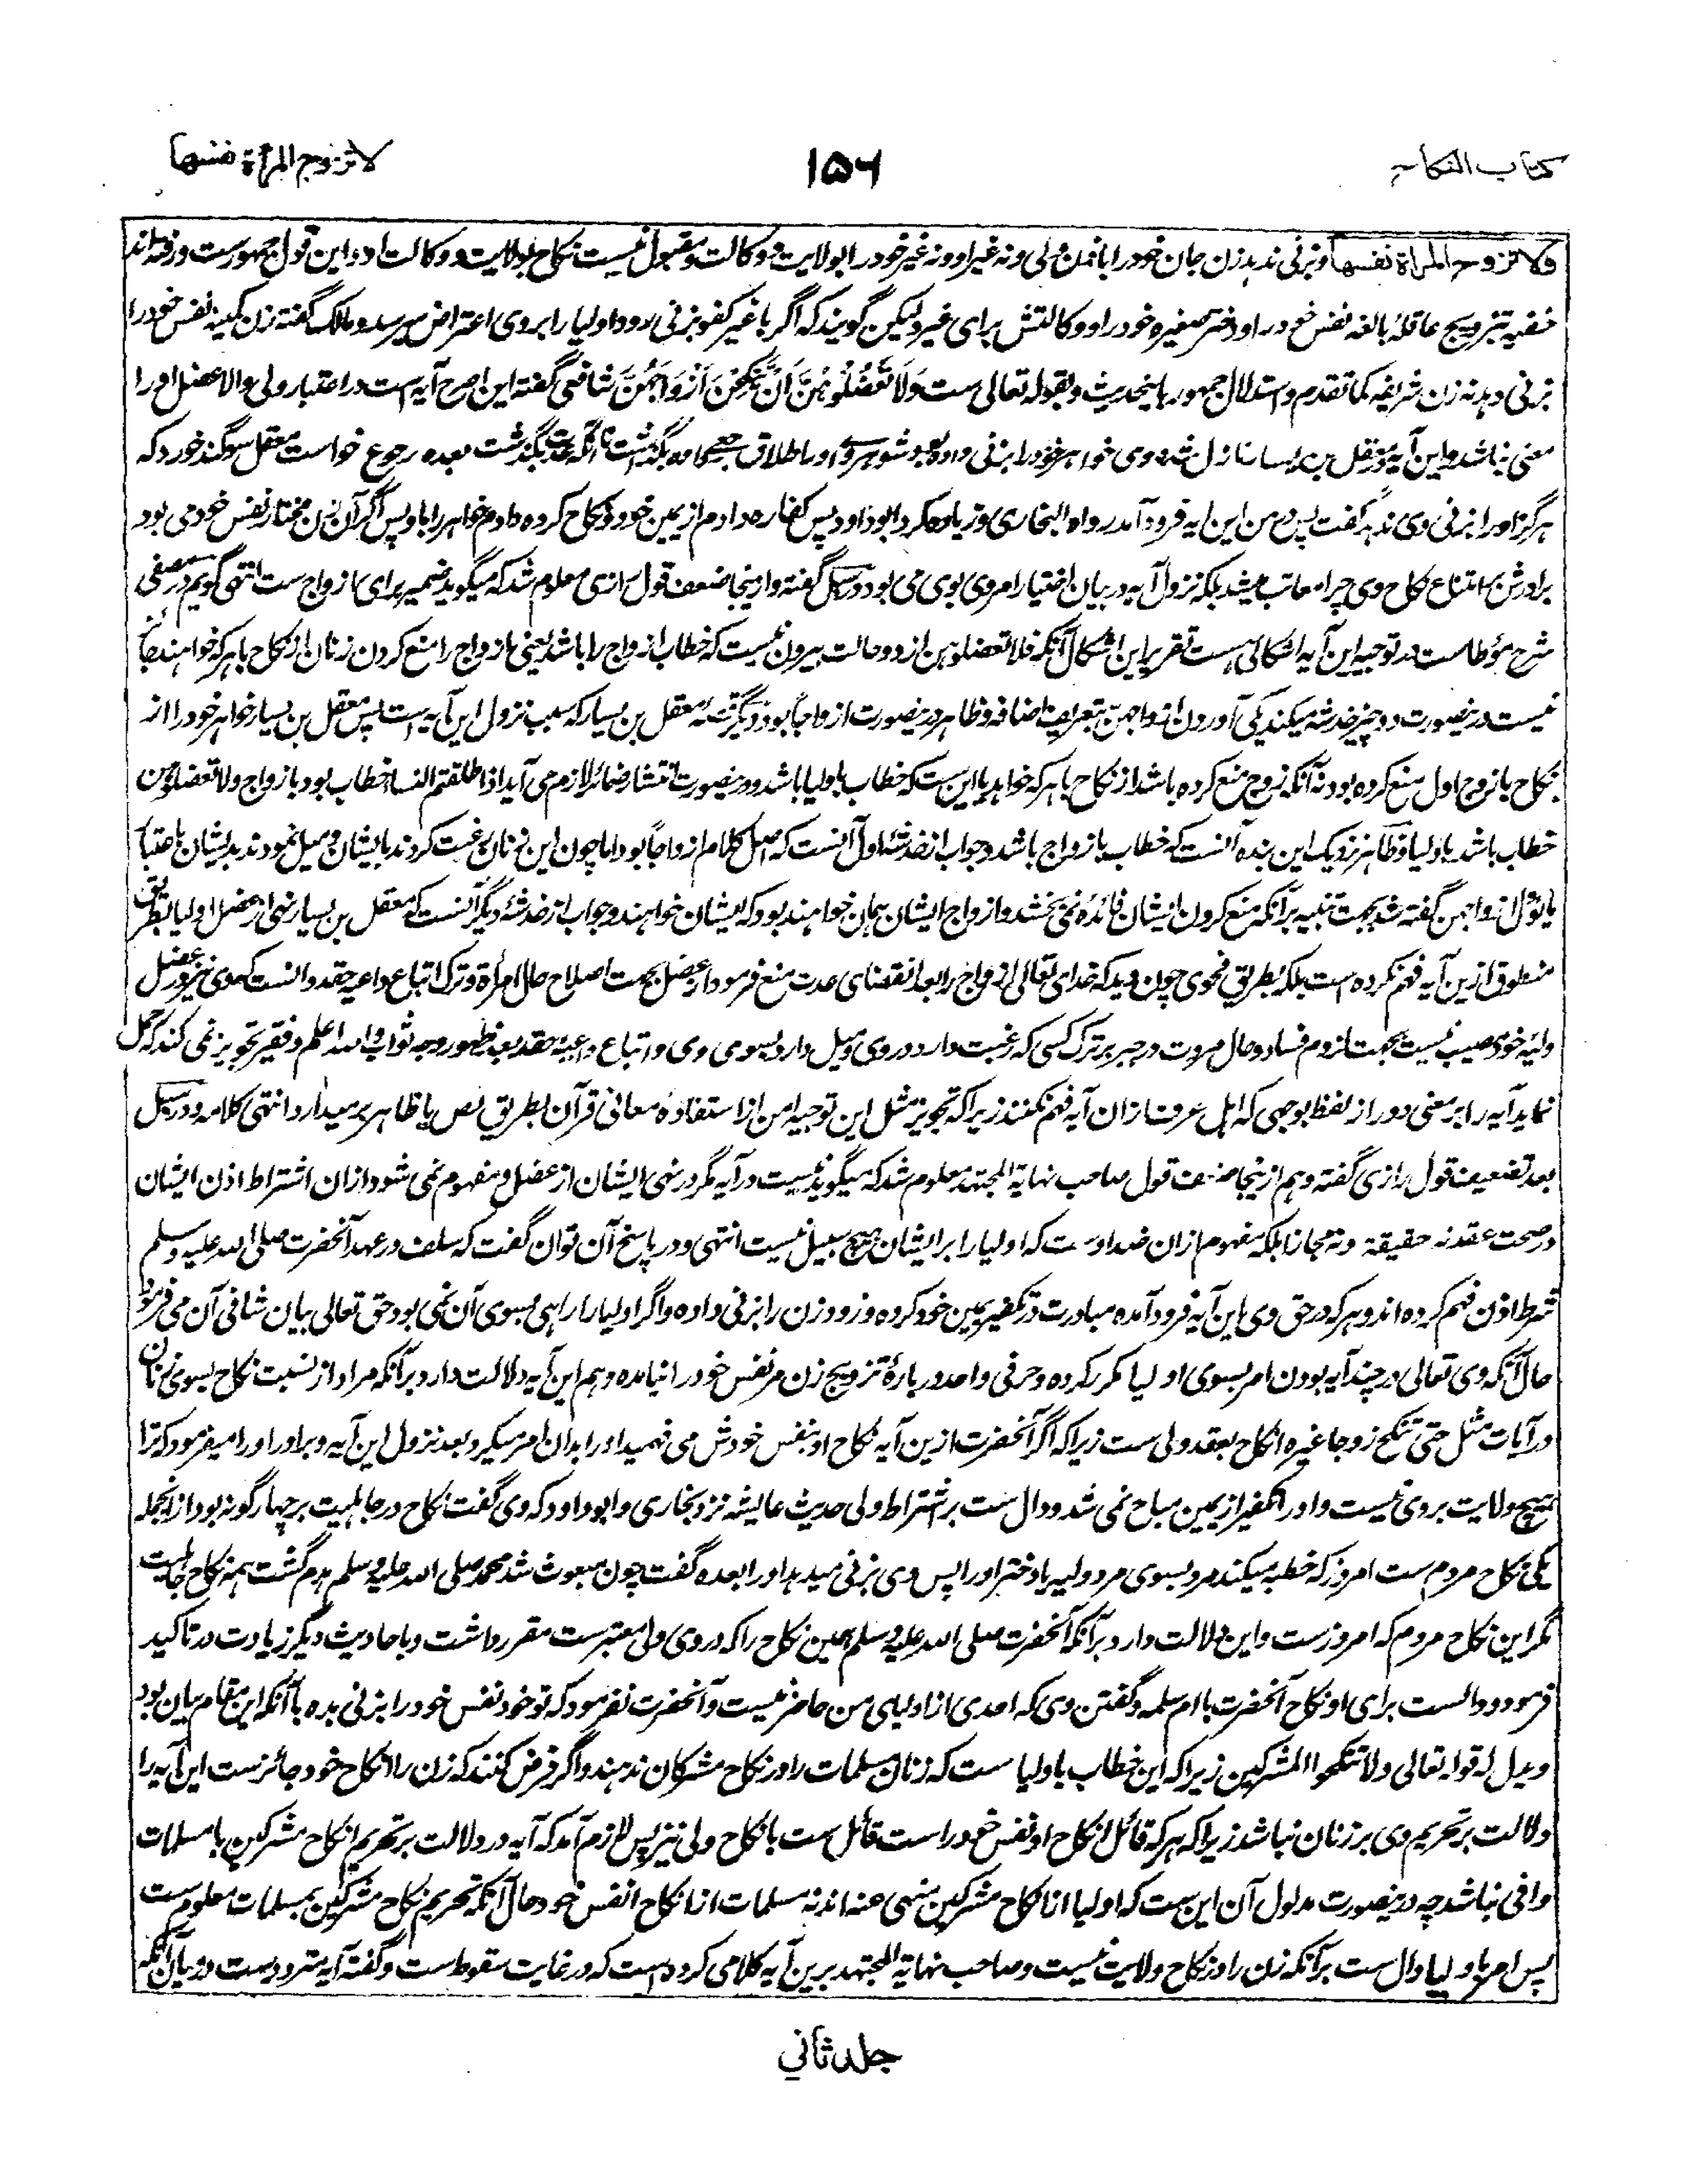 کتاب النکاح
۱۵۶
لا تزوج المرأة نفسها
ولا تزوج المرأة نفسها و بزنی ندهد زن جان خود را باذن ولی و نه غیر او و نه غیر خود را بولایت و وکالت و مقبول نیست نکاح بولایت و وکالت او و این قول جمهورست و رفته‌اند
حنفیه بتزویج عاقلهٔ بالغه نفس خود را و دختر صغیره خود را و وکالتش برای غیر ولیکن گویند که اگر با غیر کفو بزنی رود اولیا را بروی اعتراض میرسد و مالک گفته زن کمینه نفس خود را
بزنی دهد نه زن شریفه کما تقدم و استدلال جمهور باینحدیث و بقوله تعالی ست وَلَا تَعْضُلُوهُنَّ اَنْ يَّنْكِحْنَ اَزْوَاجَهُنَّ شافعی گفته این اصرح آیه است در اعتبار ولی والا عضل او را
معنی نباشد و این آیه در معقل بن یسار نازل شده وی خواهر خود را بزنی داده بود شوهر او را طلاق رجعی داده بگذاشت تا آنکه عدت بگذشت بعده رجوع خواست معقل سوگند خورد که
هرگز او را بزنی وی ندهد گفت پس در من این آیه فرود آمد رواه البخاری و زیاده کرد ابو داود پس کفاره دادم از یمین خود و نکاح کرده دادم خواهر را باو پس اگر آن زن مختار نفس خود می بود
برادرش بامتناع نکاح وی چرا معاتب میشد بلکه نزول آیه در بیان اختیار امر وی بوی می بود در سبل گفته و ازینجا ضعف قول رازی معلوم شد که میگوید ضمیر برای ازواج ست انتهی گویم در مصفی
شرح مؤطا ست در توجیه این آیه اشکالی هست تقریر این اشکال آنکه فلا تعضلوهن از دو حالت بیرون نیست که خطاب ازواج را باشد یعنی ازواج را منع کردن زنان از نکاح با هر که خواهند جائز
نیست درینصورت دو چیز خدشه میکند یکی آوردن ازواجهن بتعریف اضافه و ظاهر درینصورت ازواجا بود دیگر قصهٔ معقل بن یسار که سبب نزول این آیه است پس معقل بن یسار خواهر خود را از
نکاح با زوج اول منع کرده بود نه آنکه زوج منع کرده باشد از نکاح با هر که خواهد یا این ست که خطاب باولیا باشد و درینصورت انتشار ضمائر لازم می آید اذا طلقتم النسا خطاب بود بازواج ولا تعضلوهن
خطاب باشد باولیا و ظاهر نزدیک این بنده آنست که خطاب بازواج باشد و جواب از خدشهٔ اول آنست که اصل کلام ازواجا بود اما چون این زنان رغبت کردند بایشان و میل نمودند بدیشان باعتبار
ما یؤل ازواجهن گفته شد بجهت تنبیه برآنکه منع کردن ایشان فائده نمی بخشد و ازواج ایشان همان خواهند بود که ایشان خواهند و جواب از خدشهٔ دیگر آنست که معقل بن یسار نهی از عضل اولیا بطریق
منطوق ازین آیه فهم نکرده است بلکه بطریق فحوی چون دید که خدای تعالی ازواج را بعد انقضای عدت منع فرمود از عضل بجهت اصلاح حال امرأة و ترک اتباع داعیه حقد دانست که وی نیز در عضل
ولیه خود مصیب نیست بجهت لزوم فساد و حال مروت در جبر بر ترک کسی که رغبت دارد در وی و میل دارد بسوی وی و اتباع داعیه حقد بعد ظهور وجه ثواب والله اعلم و فقیر تجویز نمی کند که حمل
نماید آیه را بر معنی دور از لفظ بوجهی که اهل عرف ازان آیه فهم نکنند زیرا که تجویز مثل این توجیه امن از استفادهٔ معانی قرآن بطریق نص یا ظاهر برمیدارد انتهی کلامه و در سبل
بعد تضعیف قول رازی گفته و هم ازینجا ضعف قول صاحب نهایة المجتهد معلوم شد که میگوید نیست در آیه مگر نهی ایشان از عضل و مفهوم نمی شود ازان اشتراط اذن ایشان
در صحت عقد نه حقیقة و نه مجازا بلکه مفهوم ازان ضد اوست که اولیا را بر ایشان هیچ سبیل نیست انتهی و در پاسخ آن توان گفت که سلف در عهد آنحضرت صلی الله علیه وسلم
شرط اذن فهم کرده‌اند و هر که در حق وی این آیه فرود آمده مبادرت در تکفیر یمین خود کرده و زود زن را بزنی داده و اگر اولیا را راهی بسوی آن نمی بود حق تعالی بیان شافی آن می فرمود
حال آنکه وی تعالی در چند آیه بودن امر بسوی اولیا مکرر کرده و حرفی واحد دربارهٔ تزویج زن مر نفس خود را نیامده و هم این آیه دلالت دارد برآنکه مراد از نسبت نکاح بسوی زنان
در آیات مثل حتی تنکح زوجا غیره انکاح بعقد ولی ست زیرا که اگر آنحضرت ازین آیه نکاح او بنفس خودش می فهمید او را بدان امر میکرد بعد نزول این آیه و برادر او را میفرمود که ترا
هیچ ولایت بر وی نیست و او را تکفیر از یمین مباح نمی شد و دال ست بر اشتراط ولی حدیث عایشه نزد بخاری و ابو داود که وی گفت نکاح در جاهلیت بر چهار گونه بود ازانجمله
یکی نکاح مردم ست امروز که خطبه میکند مرد بسوی مرد ولیه یا دختر او را پس وی بزنی میدهد او را بعده گفت چون مبعوث شد محمد صلی الله علیه وسلم هدم گشت همه نکاح جاهلیت
مگر این نکاح مردم که امروزست و این دلالت دارد برآنکه آنحضرت صلی الله علیه وسلم همین نکاح را که در وی ولی معتبرست مقرر داشت و باحادیث دیگر زیادت در تاکید
فرمود و دالست برای او نکاح آنحضرت با ام سلمه و گفتن وی که احدی از اولیای من حاضر نیست و آنحضرت نفرمود که تو خود نفس خود را بزنی بده با آنکه این مقام بیان بود
و یدل له قوله تعالی ولا تنکحوا المشرکین زیرا که این خطاب باولیا ست که زنان مسلمات را در نکاح مشرکان ندهند و اگر فرض کنند که زن را انکاح خود جائزست این آیه را
دلالت بر تحریم وی بر زنان نباشد زیرا که هر که قائل انکاح او نفس خود راست قائل ست بانکاح ولی نیز پس لازم آمد که آیه در دلالت بر تحریم انکاح مشرکین با مسلمات
وافی نباشد چه درینصورت مدلول آن این ست که اولیا از انکاح مشرکین منهی عنه اند نه مسلمات از انکاح انفس خود حال آنکه تحریم نکاح مشرکین بمسلمات معلوم ست
پس امر باولیا دال ست برآنکه زن را در نکاح ولایت نیست و صاحب نهایة المجتهد برین آیه کلامی کرده است که در غایت سقوط ست و گفته آیه متردد ست در میان آنکه
جلد ثانی